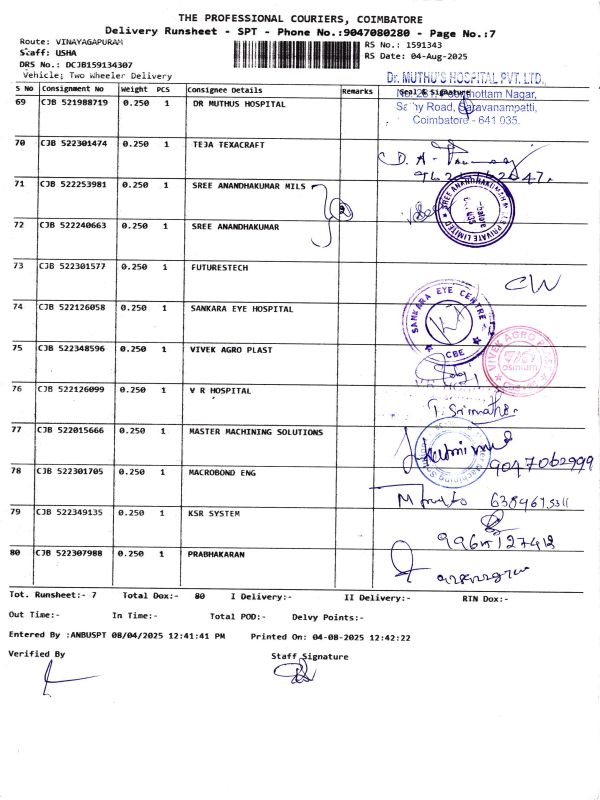 THE PROFESSIONAL COURIERS, COIMBATORE
Delivery Runsheet - SPT - Phone No.:9047080280 - Page No.:7
Route: VINAYAGAPURAM
RS No.: 1591343
Staff: USHA
RS Date: 04-Aug-2025
DRS No.: DCJB159134307
Vehicle; Two Wheeler Delivery
Dr. MUTHU'S HOSPITAL PVT. LTD.,
S NO Consignment No Weight PCS Consignee Details Remarks Seal & Signature
69 CJB 521988719 0.250 1 DR MUTHUS HOSPITAL
Nagar,
Road, Saravanampatti,
Coimbatore - 641 035.
70 CJB 522301474 0.250 1 TEJA TEXACRAFT
71 CJB 522253981 0.250 1 SREE ANANDHAKUMAR MILS
2
SREE ANANDHAKUMAR MILLS PRIVATE LIMITED
72 CJB 522240663 0.250 1 SREE ANANDHAKUMAR
73 CJB 522301577 0.250 1 FUTURESTECH
74 CJB 522126058 0.250 1 SANKARA EYE HOSPITAL
SANKARA EYE CENTRE
CBE
75 CJB 522348596 0.250 1 VIVEK AGRO PLAST
VIVEK AGRO
osmium
76 CJB 522126099 0.250 1 V R HOSPITAL
77 CJB 522015666 0.250 1 MASTER MACHINING SOLUTIONS
9047062999
78 CJB 522301705 0.250 1 MACROBOND ENG
79 CJB 522349135 0.250 1 KSR SYSTEM
80 CJB 522307988 0.250 1 PRABHAKARAN
Tot. Runsheet:- 7 Total Dox:- 80 I Delivery:- II Delivery:- RTN Dox:-
Out Time:- In Time:- Total POD:- Delvy Points:-
Entered By :ANBUSPT 08/04/2025 12:41:41 PM Printed On: 04-08-2025 12:42:22
Verified By Staff Signature